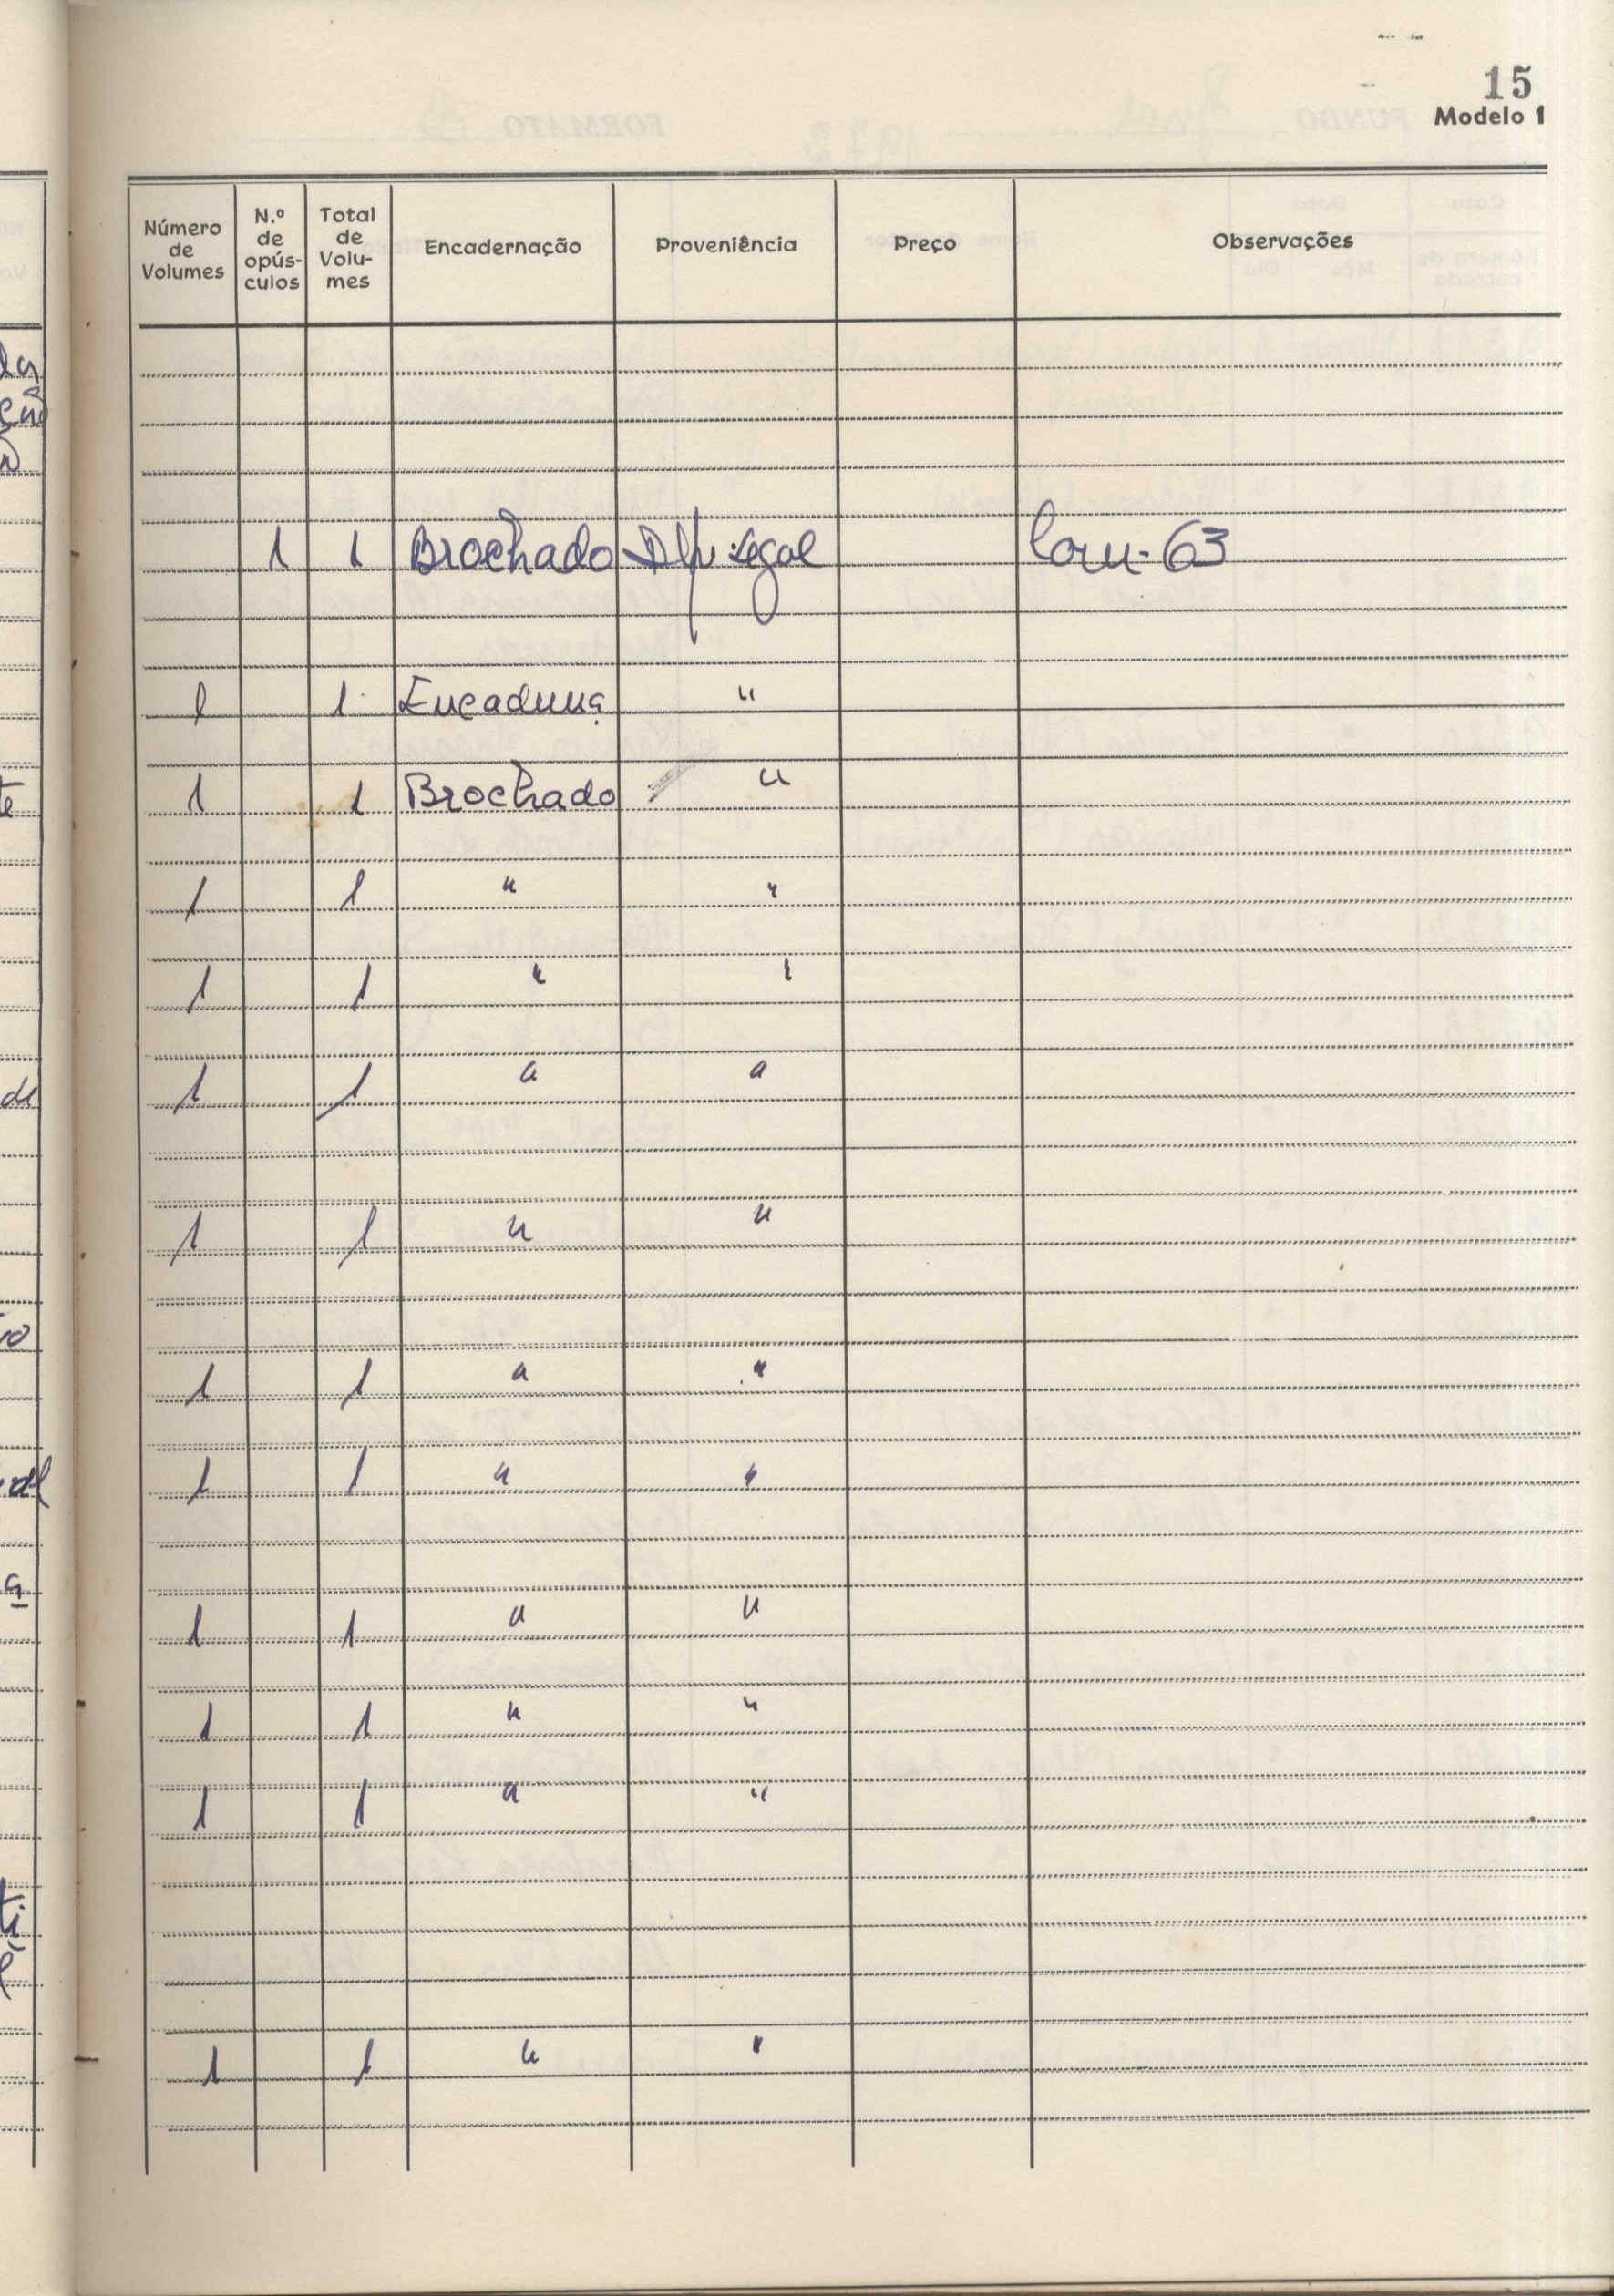 15
Modelo 1
Número de Volumes N.º de opús- culos Total de Volu- mes Encadernação Proveniência Preço Observações
1 1 Brochado Dep. Legal Com-63
1 1 Encaderna "
1 1 Brochado "
1 1 " "
1 1 " "
1 1 " "
1 1 " "
1 1 " "
1 1 " "
1 1 " "
1 1 " "
1 1 " "
1 1 " "
te
de